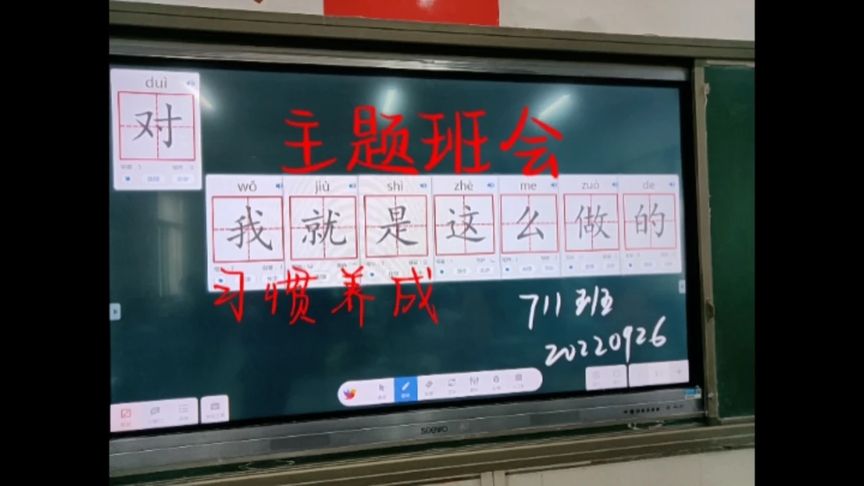 duì
对
主题班会
wǒ jiù shì zhè me zuò de
我就是这么做的
习惯养成
711班
20220926
seewo